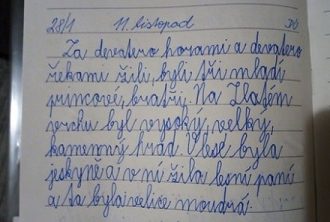 28/1 11. listopad
Za devatero horami a devatero
řekami žili, byli tři mladí
princové, bratři. Na Zlatém
vrchu byl vysoký, velký,
kamenný hrad. V lese byla
jeskyně a v ní žila lesní paní
a ta byla velice moudrá.